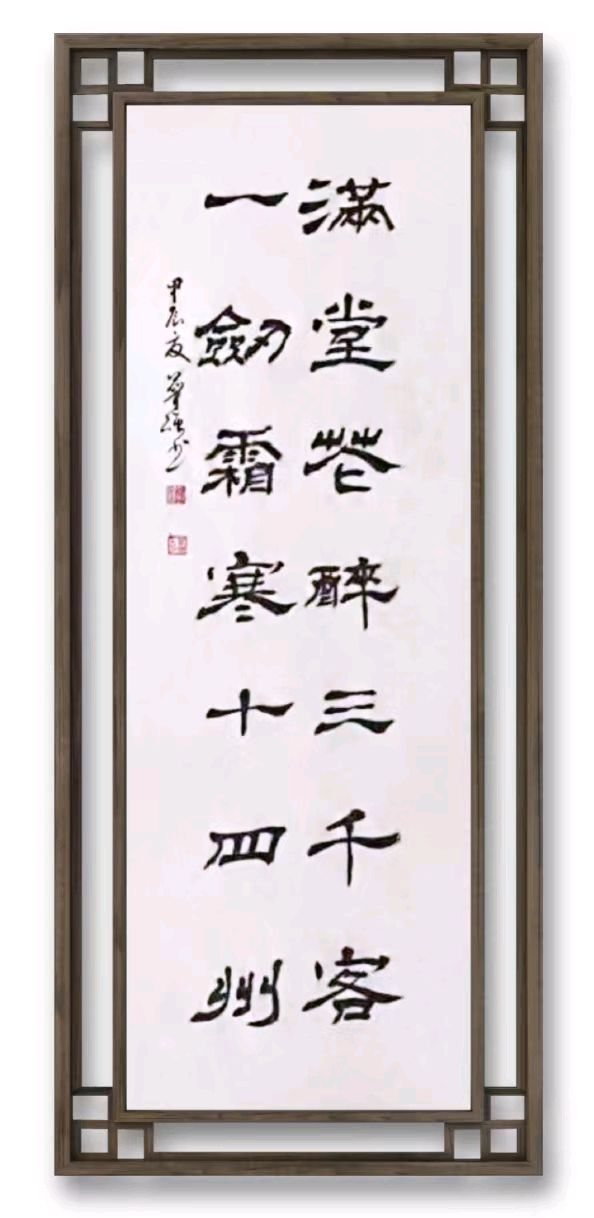 滿堂花醉三千客
一劒霜寒十四州
甲辰夏